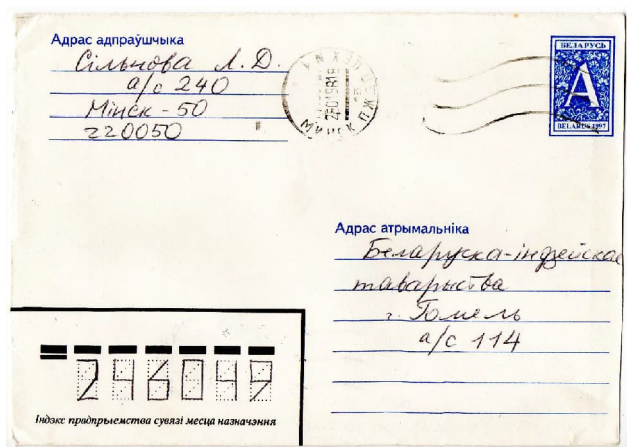 Адрас адпраўшчыка
Сільнова Л. Д.
а/с 240
Мінск-50
220050
МИНСК ПЖДП
260198 18
БЕЛАРУСЬ
А
BELARUS 1997
Адрас атрымальніка
Беларуска-індзейскае
таварыства
г. Гомель
а/с 114
246049
Індэкс прадпрыемства сувязі месца назначэння